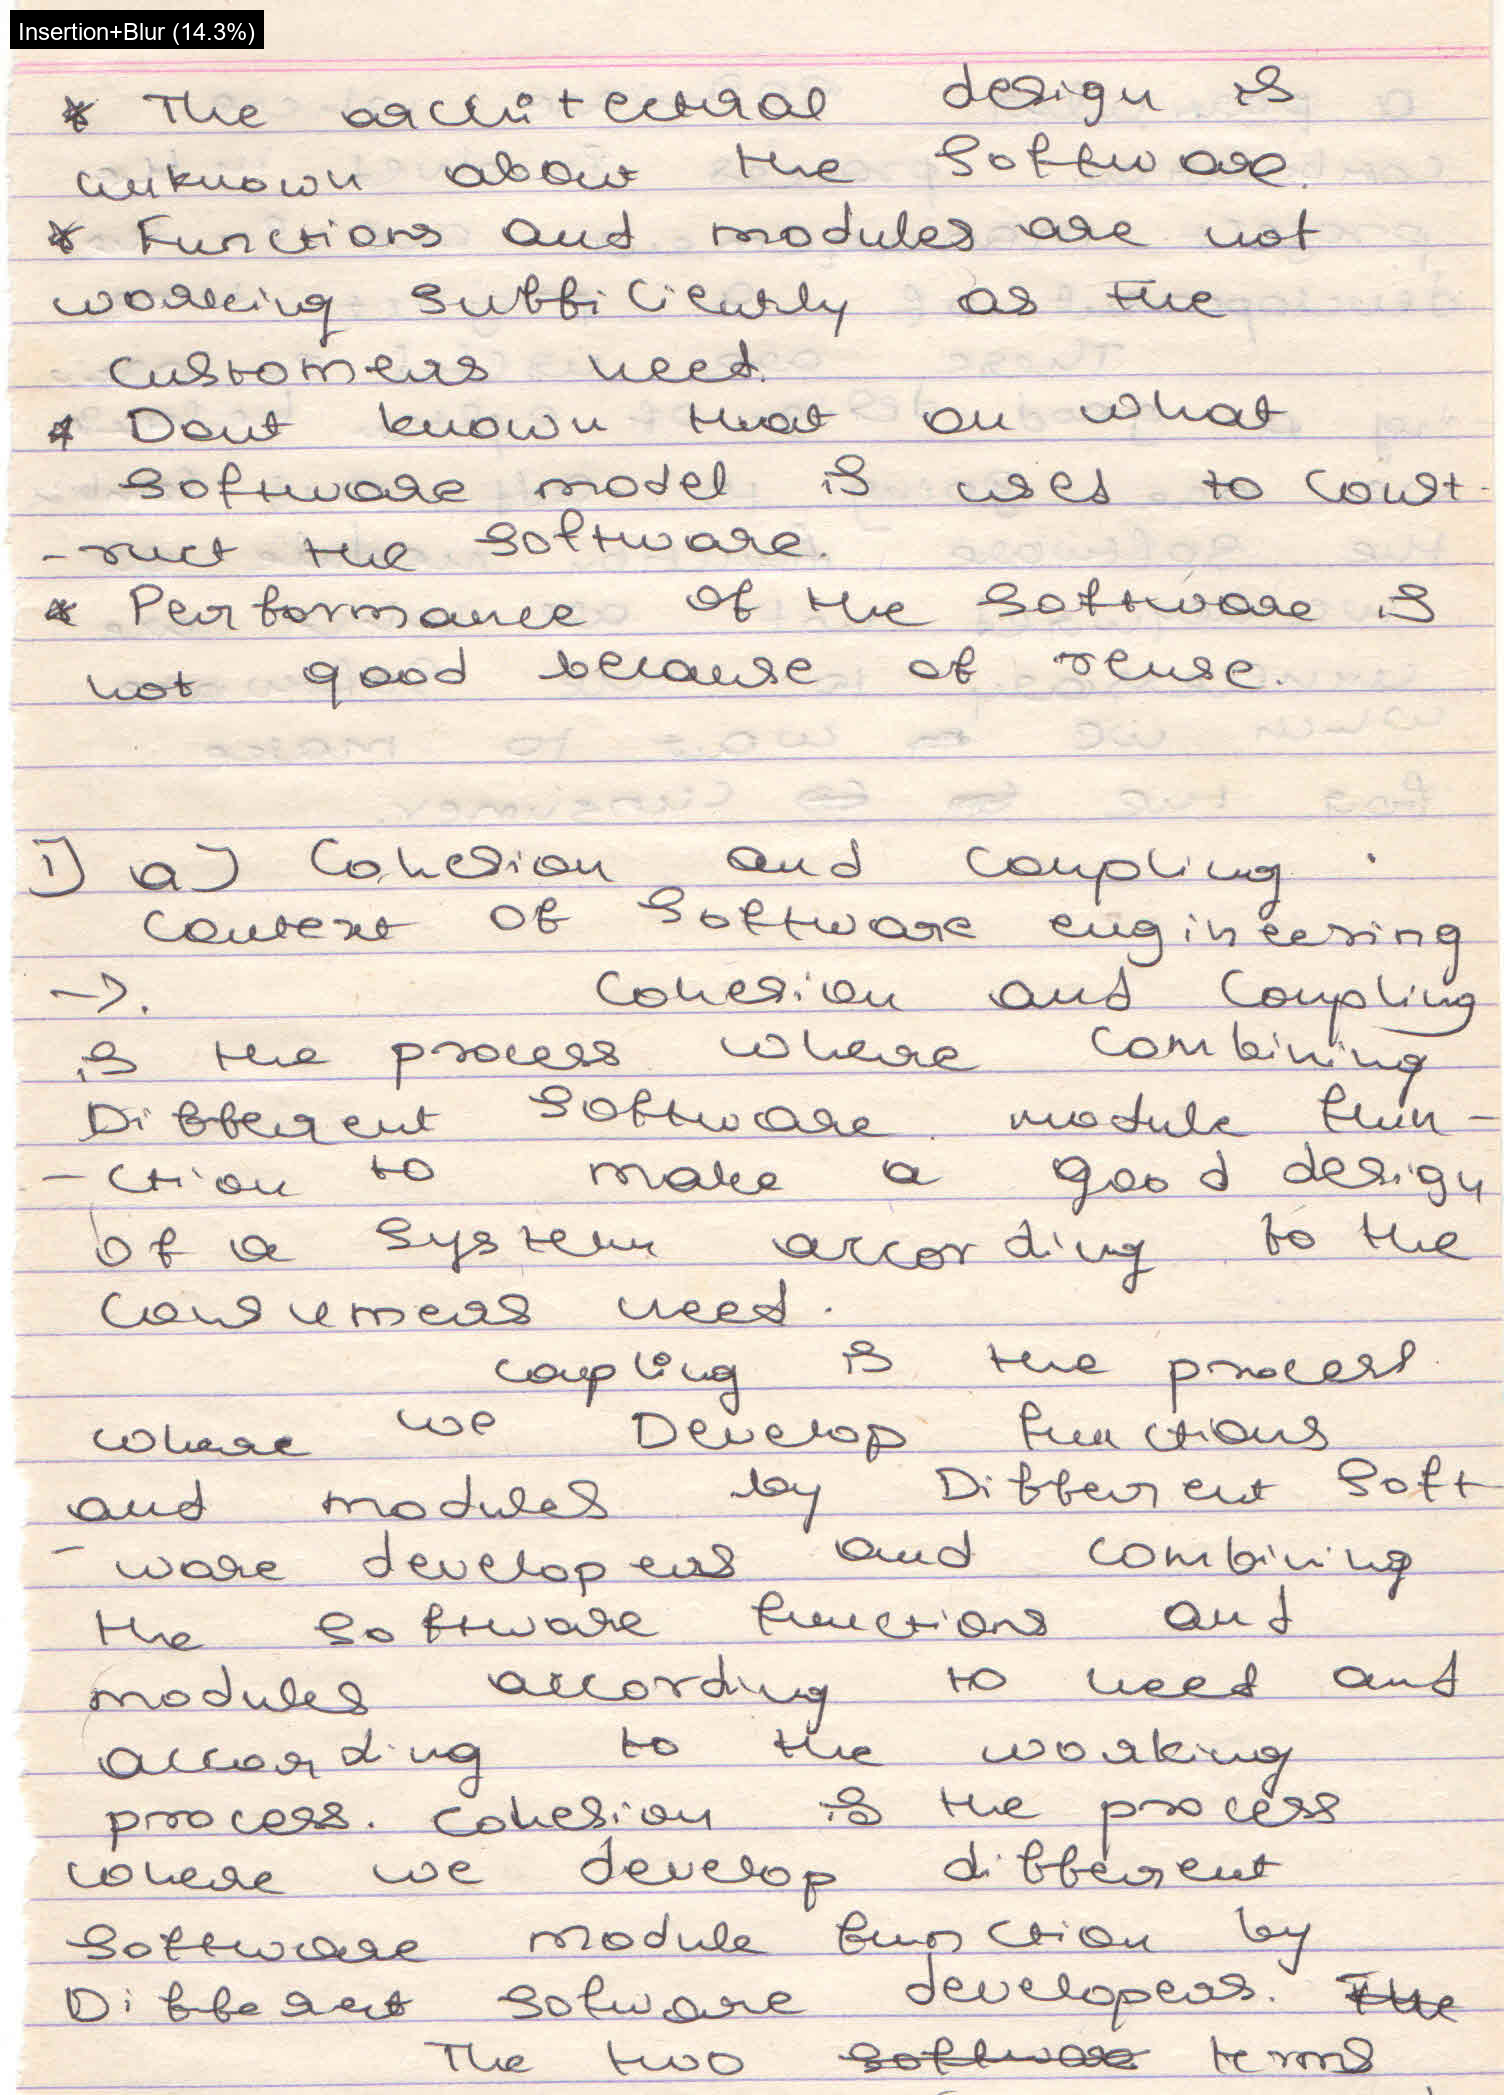 Insertion+Blur (14.3%)
* The architectral design is
unknown about the software.
* Functions and modules are not
working sufficiently as the
customers need.
* Dont known that on what
software model is used to const-
-ruct the software.
* Performance of the software is
not good because of reuse.
1) a) Cohesion and coupling.
context of software engineering
->. Cohesion and Coupling
is the process where combining
Different software module fun-
-ction to make a good design
of a system according to the
consumers need.
coupling is the process
where we Develop functions
and modules by Different soft
-ware developers and combining
the software functions and
modules according to need and
according to the working
process. cohesion is the process
where we develop different
software module function by
Different sofware developers. The
The two software terms